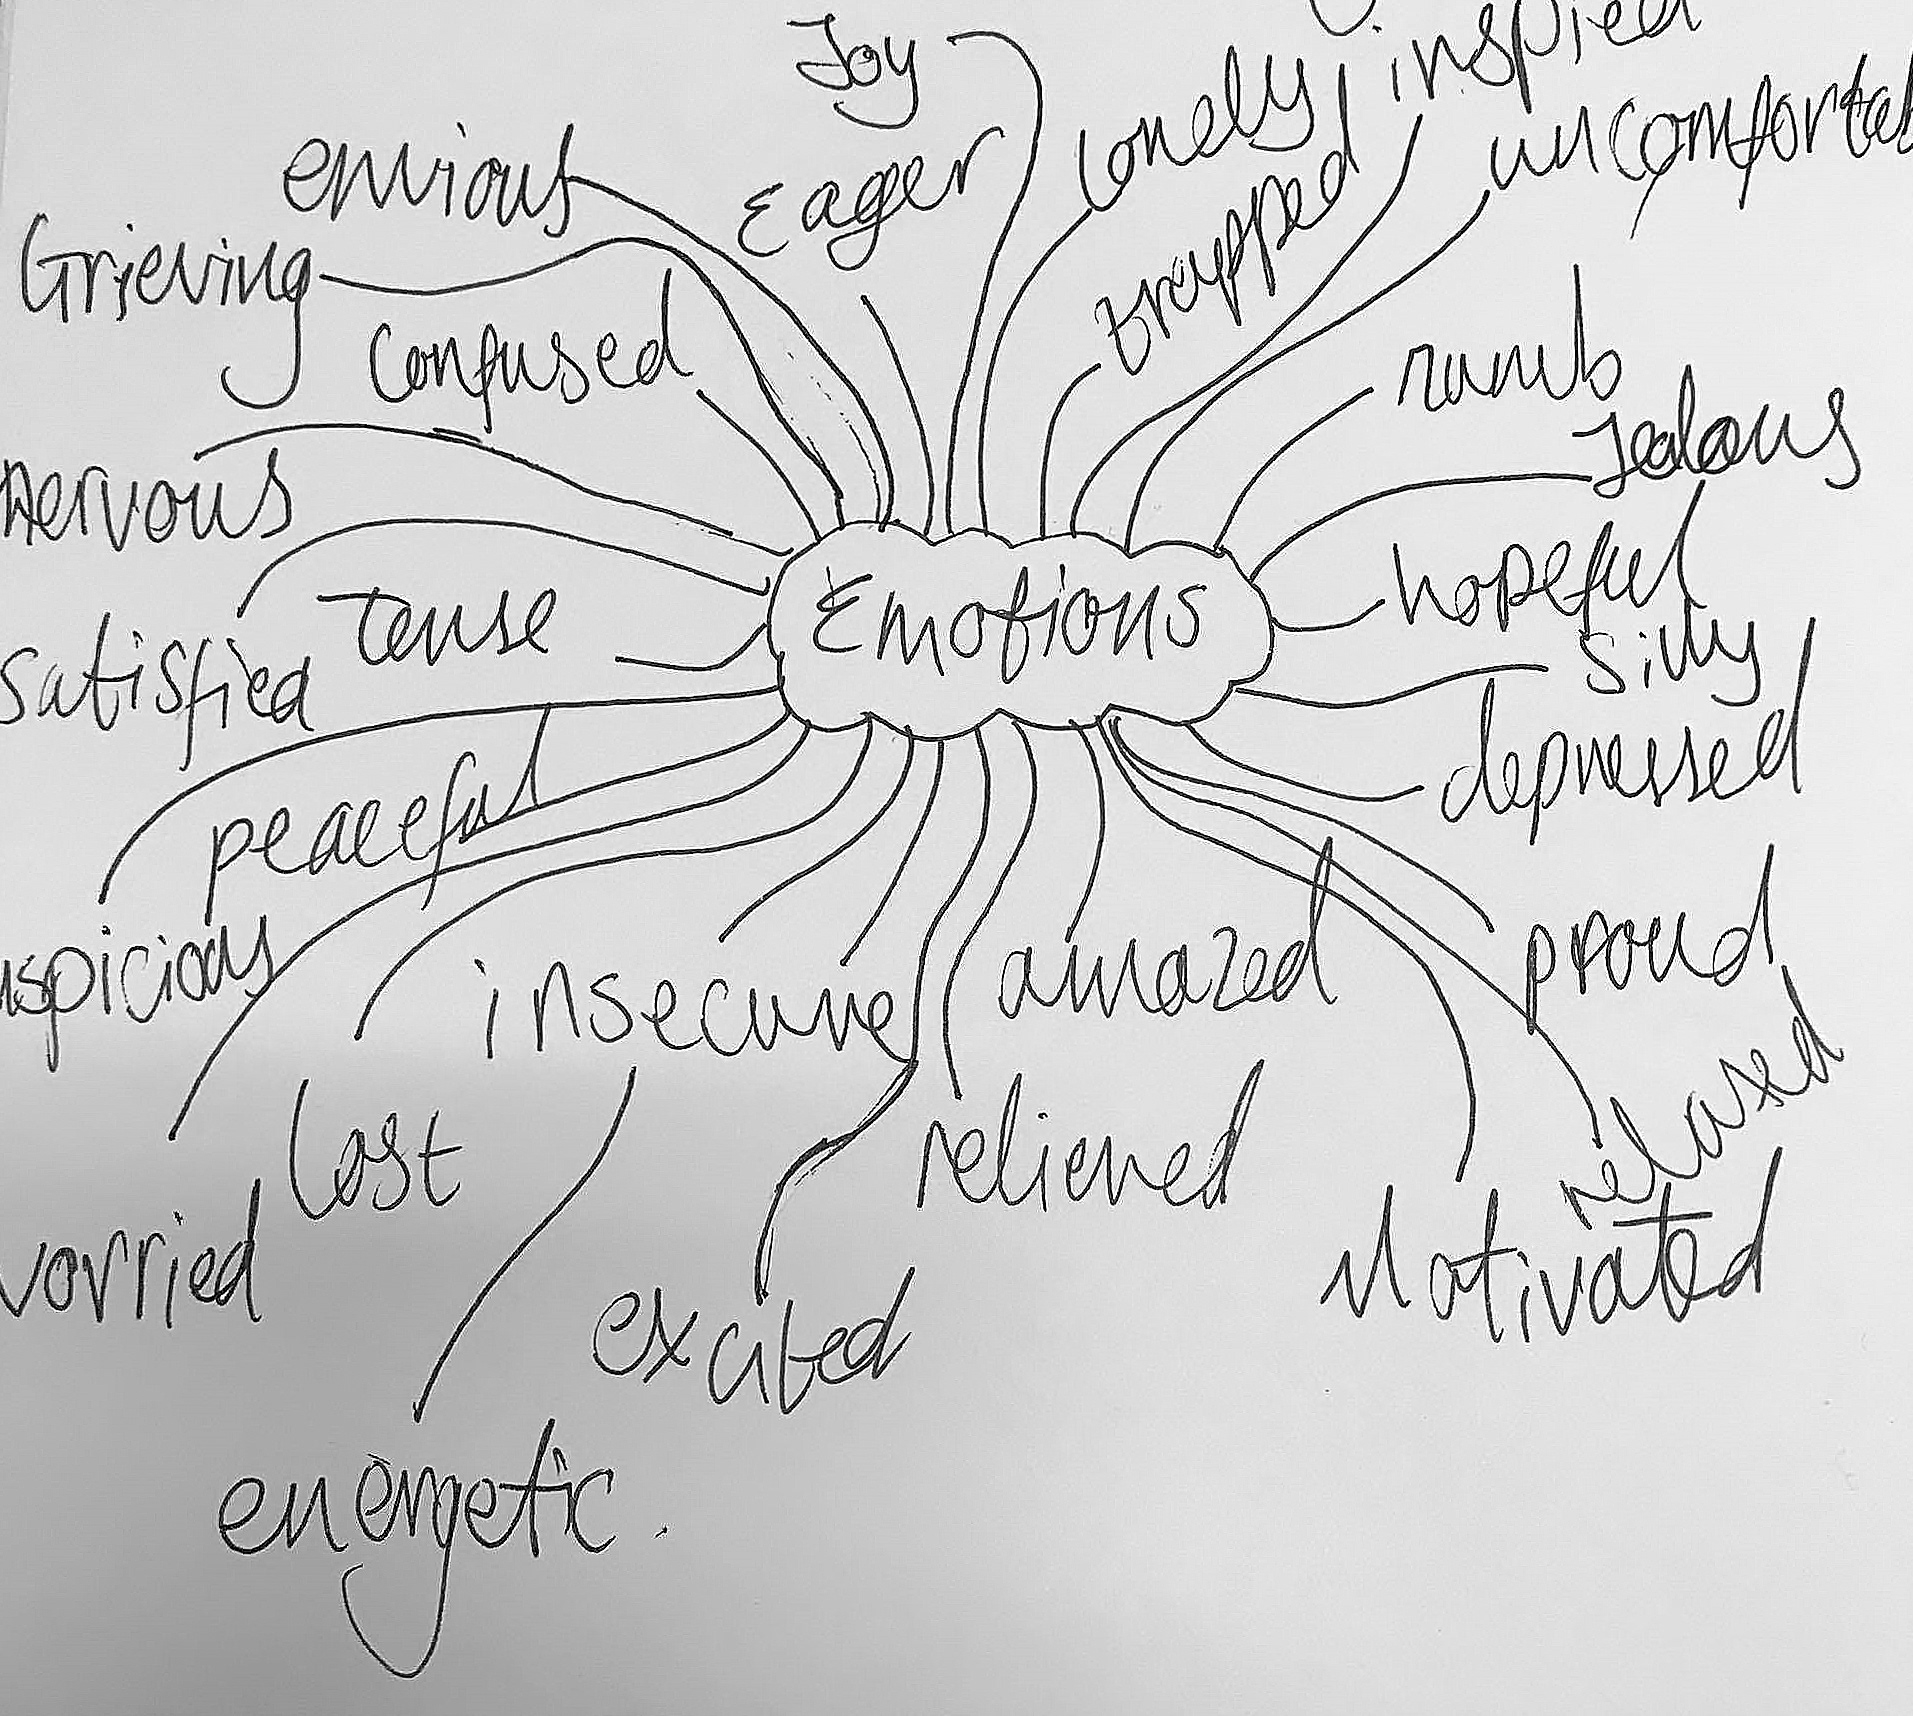 Joy
inspied
lonely
uncomfortab
envious
Eager
trapped
Grieving
confused
numb
Jealous
nervous
hopeful
Emotions
tense
silly
satisfied
depressed
peaceful
proud
uspicious
insecure
amazed
relaxed
lost
relieved
worried
Motivated
excited
energetic.